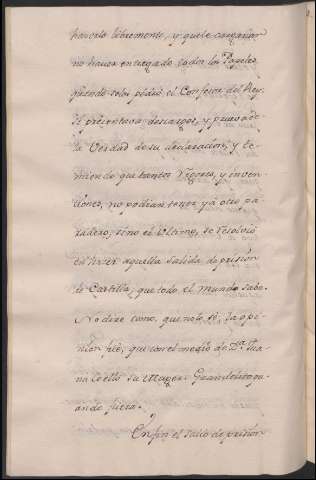 hacerlo libremente, y que le cargarian
no haver entregado todos los Papeles,
quando selos pidio el Confesor del Rey.
El presentava descargos, y pruevas de
la Verdad de su declaracion, y te-
miendo que tantos Rigores, y inven-
ciones, no podian tener ya otro pa-
radero, sino el Ultimo, se resolvió
en hacer aquella salida de prision
de Castilla, que todo el mundo sabe.
No dire como, que no lo sé, la opi-
nion fué, que con el medio de D.ª Jua-
na Coello su Muger. Grande
ande fuera.
En fin el salió de prision